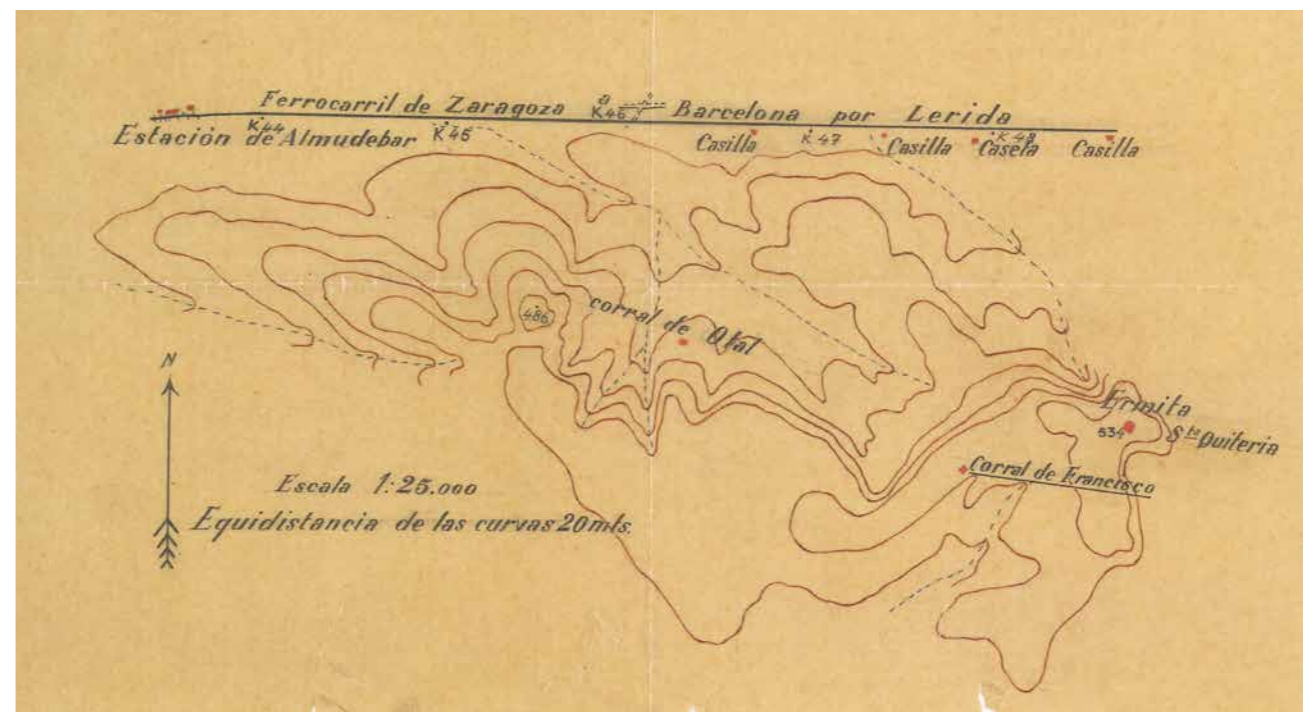 Ferrocarril de Zaragoza a Barcelona por Lerida
Estación de Almudebar
K 44
K 45
K 46
Casilla
K 47
Casilla
K 48
Caseta
Casilla
486
corral de Otal
N
Ermita
Sta Quiteria
534
Corral de Francisco
Escala 1:25.000
Equidistancia de las curvas 20 mts.